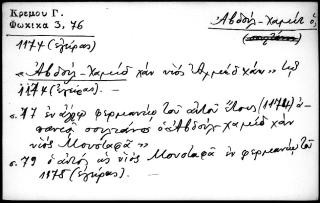 Κρεμου Γ.
Φωκικα 3, 76
Ἀβδούλ-Χαμίτ ὁ
(σουλτάνος)
1174 (ἐγίρας)
«Ἀβδούλ-Χαμίδ χάν υἱός Ἀχμέδ χάν»
1174 (ἐγίρας). –
σ. 77 ἐν ἄλλῳ φερμανίῳ τοῦ αὐτοῦ ἔτους (1174)
σουλτάνος ὁ Ἀβδούλ χαμίδ χάν
υἱός Μουσταφᾶ»
σ. 79 ὁ αὐτός ὡς υἱός Μουσταφᾶ ἐν φερμανίῳ τοῦ
1178 (ἐγίρας).